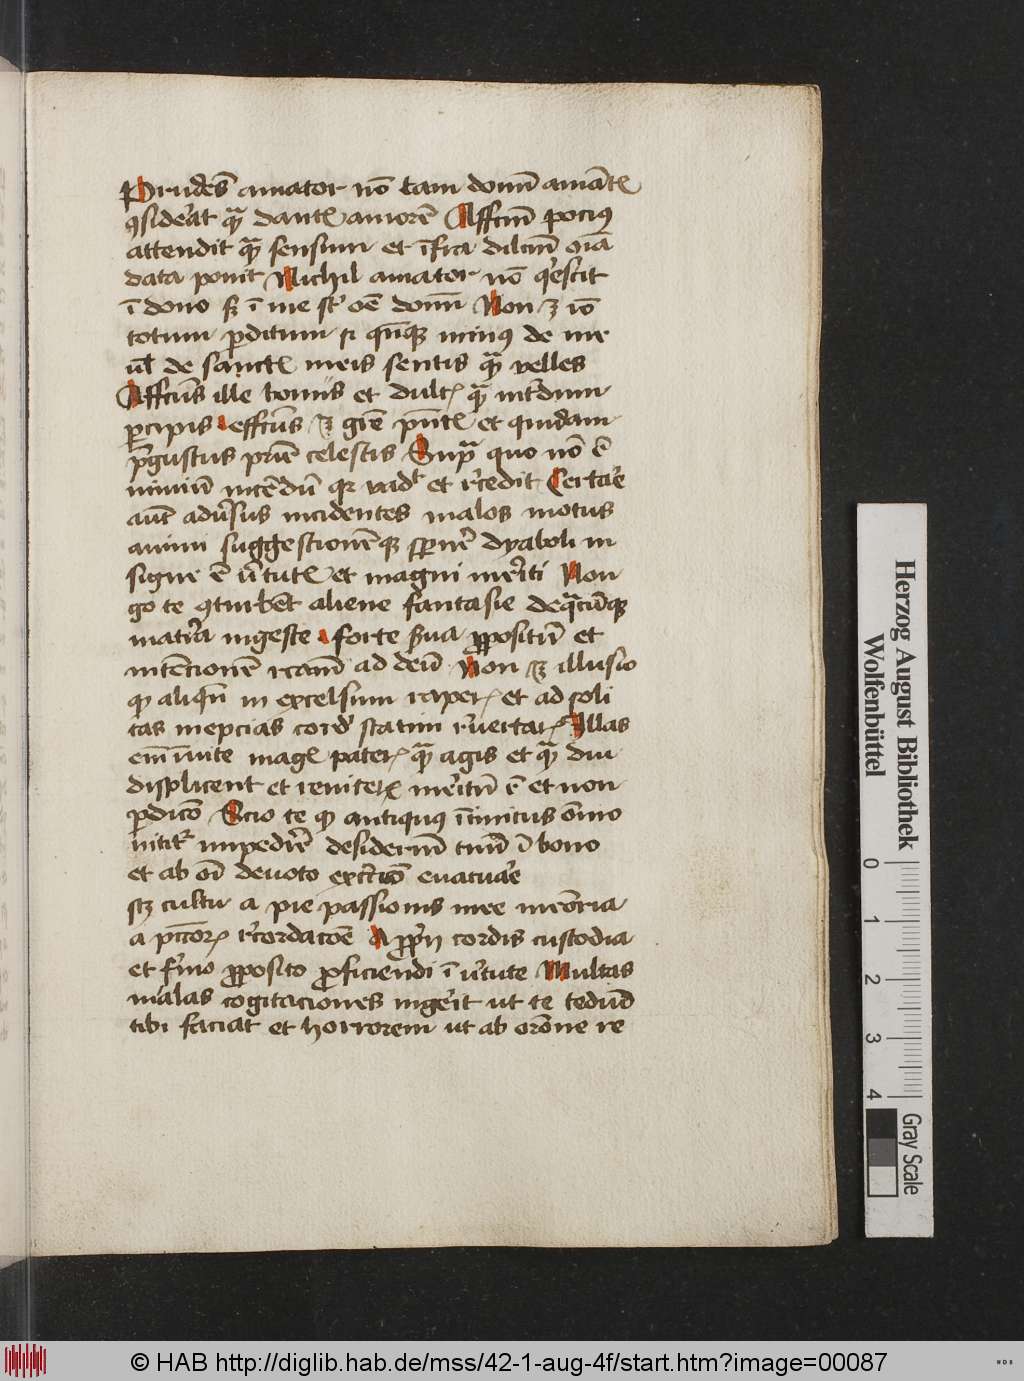 Prudēs amator nō tam donū amātꝭ
ꝯsiderat quā dantꝭ amorē Affcm̄ pocius
attendit quā sensum et īfra dilcm̄ oīa
data ponit Nichil amator nō qͥescit
ī dono sꝫ ī me sr̄ oē donū Non ꝫ iō
totum ꝑditum si qn̄qꝫ minꝰ de me
ul̄ de sanctꝭ meis sentis quā velles
Affcūs ille bonus et dulcꝭ quā int̄dum
ꝑcipis effcūs ꝫ grē pn̄tꝭ et quidam
p̄gustus prīe celestis Supra quo nō ē
nimiū nitēdū qꝛ vadꝭ et recedit Certare
aūt adūsus incidentes malos motus
animi suggestionēqꝫ spernere dyaboli in
signe ē v̄tutꝭ et magni meriti Non
go te ꝯturbēt aliene fantasie de qͣcūqꝫ
materia ingeste forte serua ꝓpositū et
intēcionē rcam̄ ad deū Non ꝫ illusio
qꝫ aliqn̄ in excelsum raperꝭ et ad soli
tas inepcias cordꝭ statim reuertarꝭ Illas
em̄ īuite magꝭ paterꝭ quā agis et quā diu
displicent et reniterꝭ meritū ē et non
ꝑdicō Scio te qꝫ antiquꝰ īimicus om̄ino
nititͬ impedire desideriū tuū ī bono
et ab oī deuoto exercicō euacuare
scꝫ cultu a pie passionis mee memoria
a pctōrꝭ recordacōe A ꝓpͥa cordis custodia
et firmo ꝓposito ꝓficiendi ī v̄tute Multas
malas cogitaciones ingerit ut te tediū
tibi faciat et horrorem ut ab orōne re
Herzog August Bibliothek
Wolfenbüttel
0 1 2 3 4
Gray Scale
© HAB http://diglib.hab.de/mss/42-1-aug-4f/start.htm?image=00087